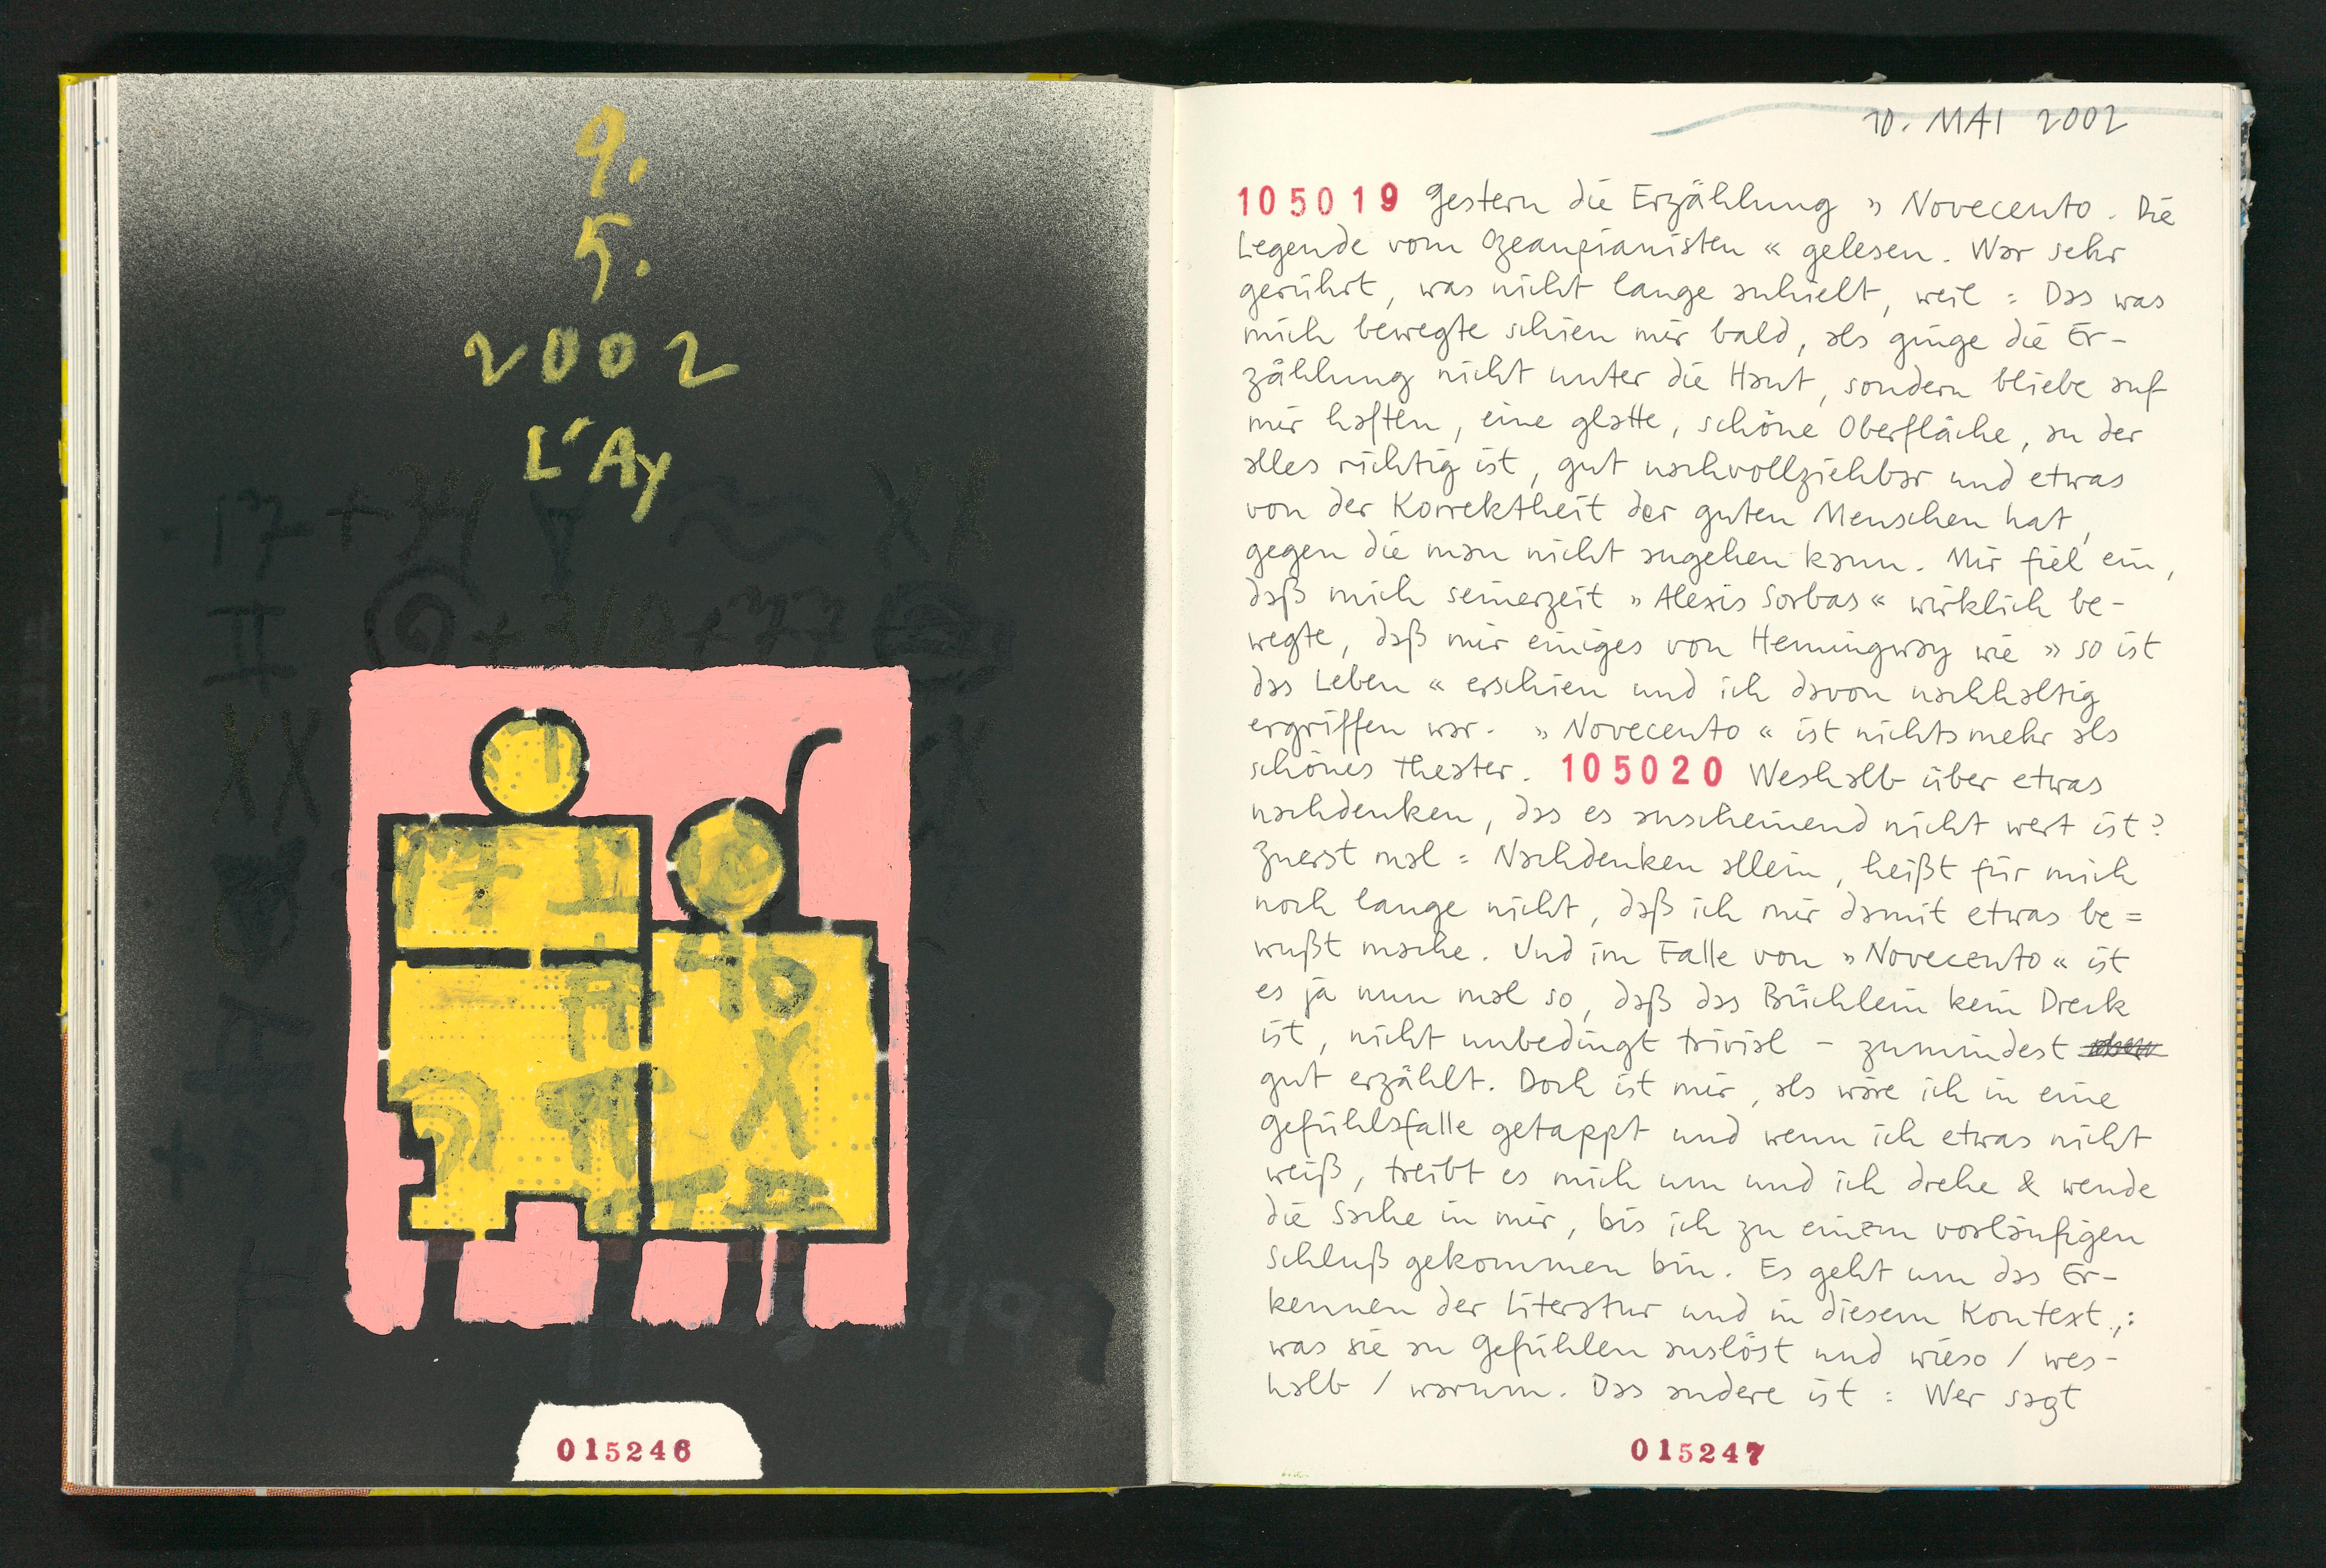 9.
5.
2002
L'Ay
17 II
46
X
015246
10. MAI 2002
105019 Gestern die Erzählung » Novecento. Die
Legende vom Ozeanpianisten « gelesen. War sehr
gerührt, was nicht lange anhielt, weil : Das was
mich bewegte schien mir bald, als ginge die Er-
zählung nicht unter die Haut, sondern bliebe auf
mir haften, eine glatte, schöne Oberfläche, an der
alles richtig ist, gut nachvollziehbar und etwas
von der Korrektheit der guten Menschen hat,
gegen die man nicht angehen kann. Mir fiel ein,
daß mich seinerzeit » Alexis Sorbas « wirklich be-
wegte, daß mir einiges von Hemingway wie » so ist
das Leben « erschien und ich davon nachhaltig
ergriffen war. » Novecento « ist nichts mehr als
schönes Theater. 105020 Weshalb über etwas
nachdenken, das es anscheinend nicht wert ist?
Zuerst mal : Nachdenken allein, heißt für mich
noch lange nicht, daß ich mir damit etwas be=
wußt mache. Und im Falle von » Novecento « ist
es ja nun mal so, daß das Büchlein kein Dreck
ist, nicht unbedingt trivial – zumindest
gut erzählt. Doch ist mir, als wäre ich in eine
Gefühlsfalle getappt und wenn ich etwas nicht
weiß, treibt es mich um und ich drehe & wende
die Sache in mir, bis ich zu einem vorläufigen
Schluß gekommen bin. Es geht um das Er-
kennen der Literatur und in diesem Kontext,:
was sie an Gefühlen auslöst und wieso / wes-
halb / warum. Das andere ist : Wer sagt
015247